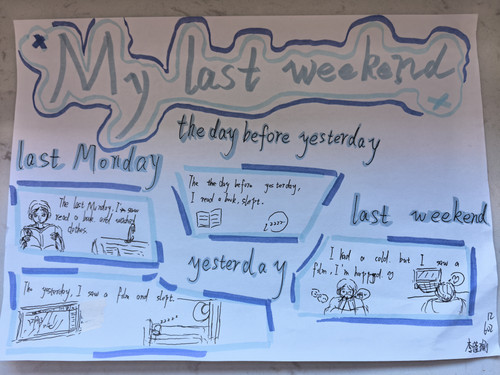 My last weekend
the day before yesterday
last Monday
The last Monday, I'm
read a book. and washed
clothes.
The the day before yesterday,
I read a book. slept.
zzzz
last weekend
I had a cold. but I saw a
film, I'm
yesterday
The yesterday, I saw a film and slept.
zzzz